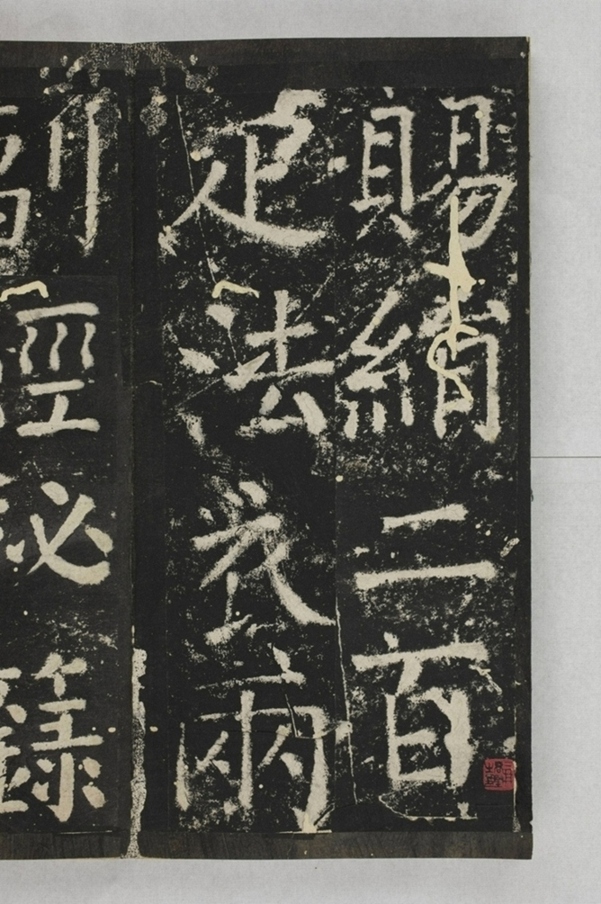 賜絹二百
疋法衣兩
副經秘錄